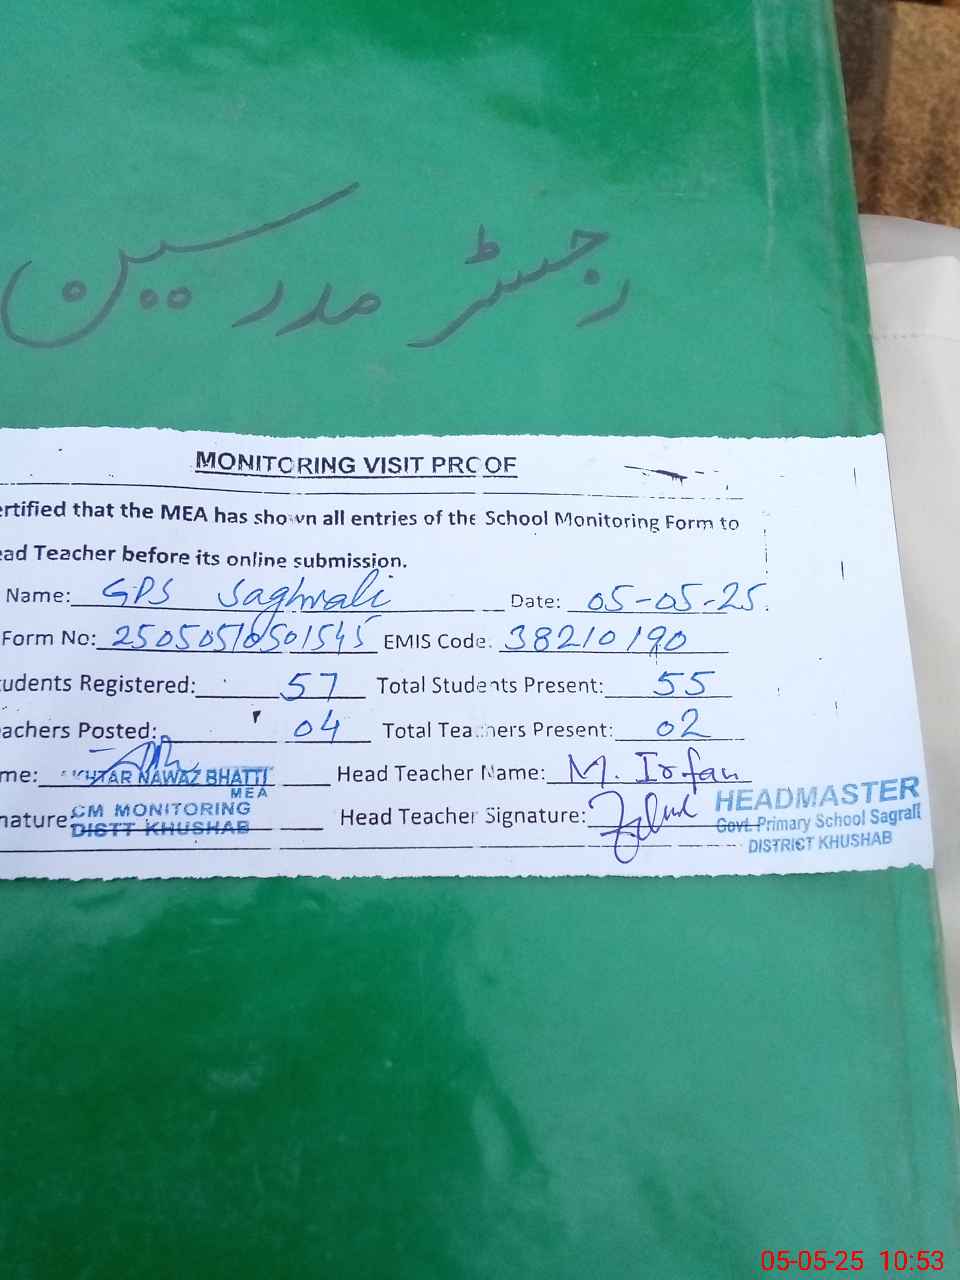 رجسٹر مدرسین
MONITORING VISIT PROOF
ertified that the MEA has shown all entries of the School Monitoring Form to
ead Teacher before its online submission.
Name: GPS Saghrali Date: 05-05-25.
Form No: 25050510501545 EMIS Code: 38210190
tudents Registered: 57 Total Students Present: 55
achers Posted: 04 Total Teachers Present: 02
me: AKHTAR NAWAZ BHATTI Head Teacher Name: M. Irfan
MEA
nature: CM MONITORING Head Teacher Signature: HEADMASTER
DISTT KHUSHAB Govt. Primary School Sagrali
DISTRICT KHUSHAB
05-05-25 10:53